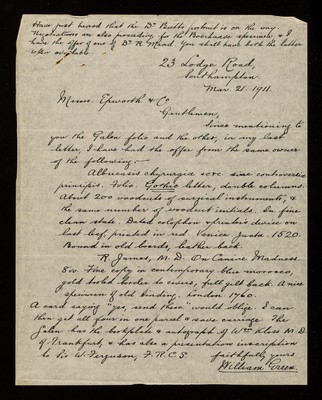 Have just heard that the Dr Butts portrait is on the way.
Negotiations are also proceeding for the Boerhaave specimen, & I
have the offer of one of Dr R. Mead. You shall have both the latter
when available.
23 Lodge Road,
Southampton.
Mar. 21. 1911.
Messrs. Epworth & Co
Gentlemen,
Since mentioning to
you the Galen folio and the other, in my last
letter, I have had the offer from the same owner
of the following:—
Albucasis chyrurgia
principis. Folio. Gothic letter, double columns.
About 200 woodcuts of surgical instruments, &
the same number of woodcut initials. In fine
clean state. Dated colophon & printer's device on
last leaf, printed in red. Venice Junta 1520.
Bound in old boards, leather back.
R. James, M.D. On Canine Madness.
8vo. Fine copy in contemporary blue morocco,
gold tooled border to covers, full gilt back. A nice
specimen of old binding. London 1760.
A card saying "yes, send them" would oblige. I can
then get all four in one parcel & save carriage. The
Galen has the bookplate & autograph of Wm Kloss M.D.
of Frankfurt, & has also a presentation inscription
to Sir W. Ferguson, F.R.C.S.
faithfully yours,
William Green.